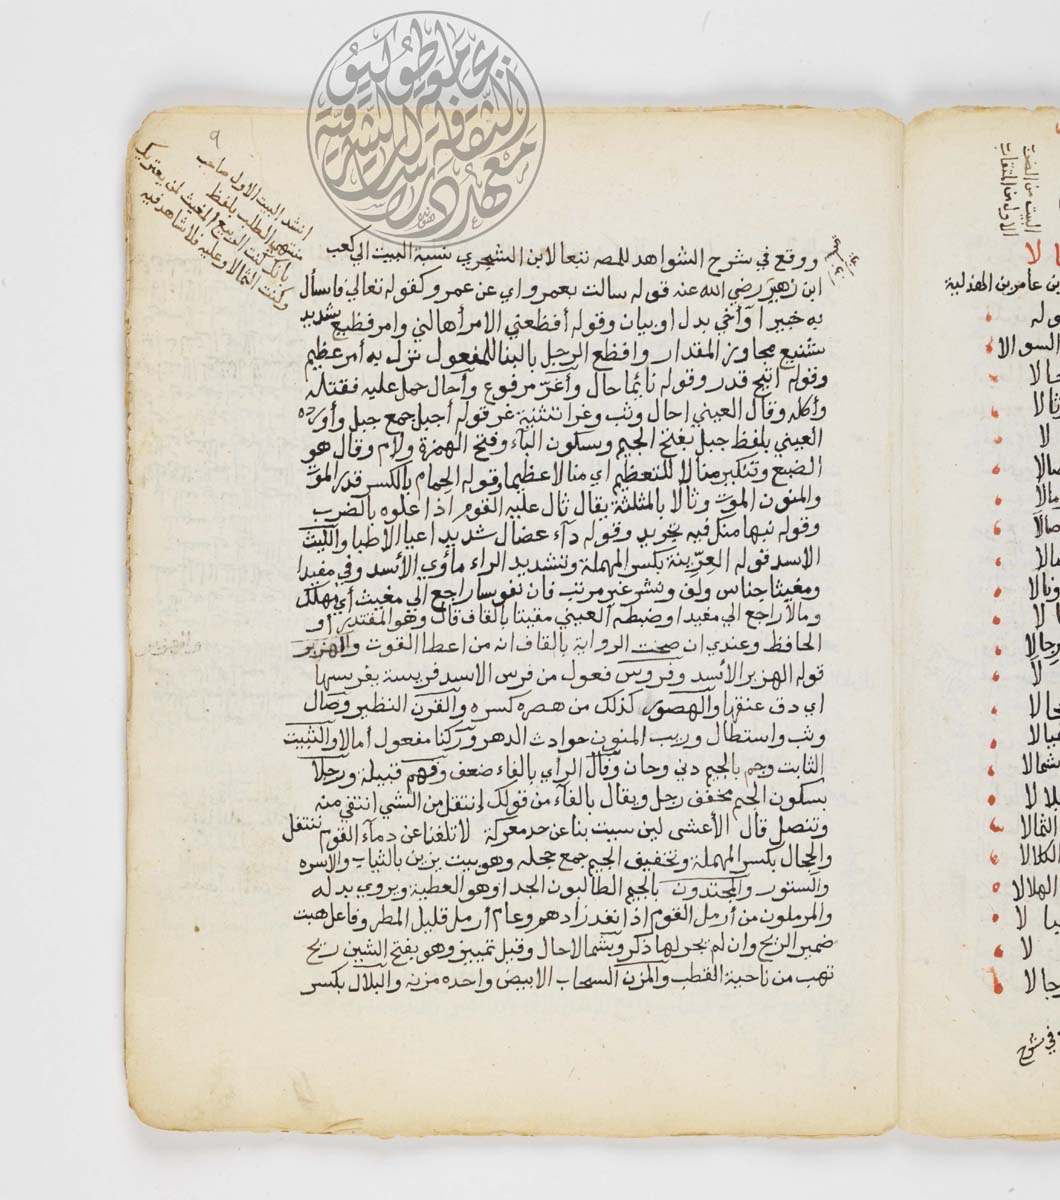 ٩
انشد البيت الاول صاحب
منتهى الطلب بلفظ
بانك كنت الربيع المغيث لمن يعتريك
وكنت الثمالا وعليه فلا شاهد فيه
ووقع في شرح الشواهد للمصه تبعا لابن الشجري نسبة البيت الي كعب
ابن زهير رضي الله عنه قوله سالت بعمرو اي عن عمرو كقوله تعالي فاسأل
به خبيرا وأخي بدل او بيان وقوله أفظعني الامر أهالني وامر فظيع شديد
شنيع مجاوز المقدار وافظع الرجل بالبنا للمفعول نزل به أمر عظيم
وقوله اتيح قدر وقوله نائما حال وأعز مرفوع وأحال حمل عليه فقتله
وأكله وقال العيني احال وثب وغرا تثنية غر قوله أجبل جمع جبل وأورده
العيني بلفظ جيل بفتح الجيم وسكون الياء وفتح الهمزة ولام وقال هو
الضبع وتنكير منالا للتعظيم اي منالا عظيما وقوله الحمام بالكسر قدر الموت
والمنون الموت وثالا بالمثلثة يقال ثال عليه القوم اذا علوه بالضرب
وقوله نبها مثل فيه تجريد وقوله داء عضال شديد اعيا الاطبا والليث
الاسد قوله العريسة بكسر المهملة وتشديد الراء مأوي الأسد وفي مفيدا
ومغيثا جناس ولف ونشر غير مرتب فان نفوسا راجع الي مغيث أي تهلك
ومالا راجع الي مفيدا وضبطه العيني مقيتا بالقاف قال وهو المقتدر او
الحافظ وعندي ان صحت الرواية بالقاف انه من اعطا القوت والهزبر
قوله الهزبر الأسد وفروس فعول من فرس الاسد فريسة يفرسها
اي دق عنقها والهصور كذلك من هصره كسره والقرن النظير وصال
وثب واستطال وريب المنون حوادث الدهر وركنا مفعول أمالا والثبيت
الثابت وجم بالجيم دني وحان وفال الرأي بالفاء ضعف وفهم قبيلة ورجلا
بسكون الجيم مخفف رجل ويقال بالفاء من قولك إنتقل من الشي انتفي منه
وتنصل قال الأعشى لين سيت بنا عن حد معركة لا تلفنا عن دماء القوم ننتقل
والحجال بكسر المهملة وتخفيف الجيم جمع حجلة وهو بيت يزين بالثياب والاسره
والستور والمجتدون بالجيم الطالبون الجدا وهو العطية ويروي بدله
والمرملون من أرمل القوم اذا نفد زادهم وعام أرمل قليل المطر وفاعل هبت
ضمير الريح وان لم يجر لها ذكر وشمالا حال وقيل تمييز وهو بفتح الشين ريح
تهب من ناحية القطب والمزن السحاب الابيض واحده مزنه والبلال بكسر